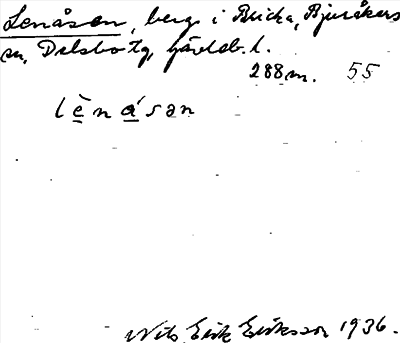 Lenåsen, berg i Bricka, Bjuråkers
sn, Delsbo tg, Gävleb. l.
288 m. 55
lènásan
Nils Erik Eriksson 1936.